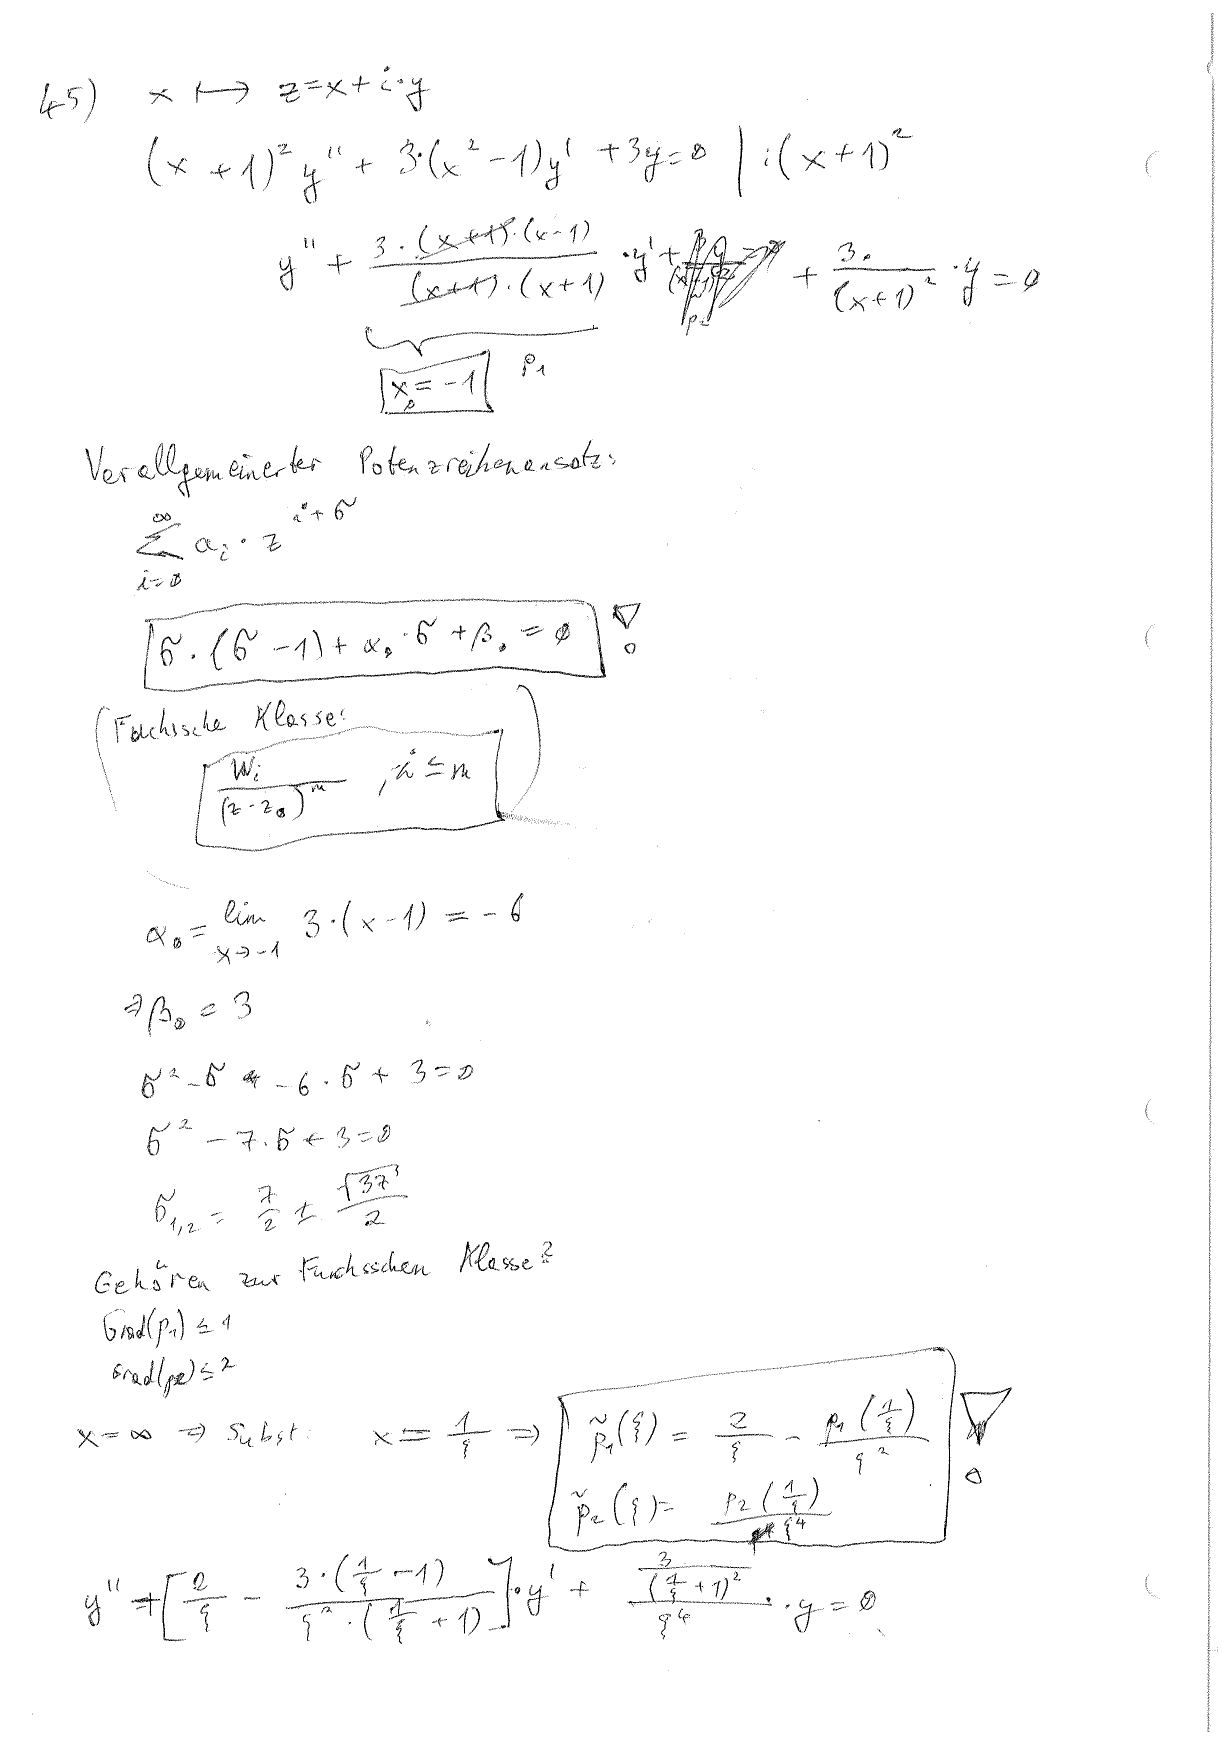 45) x ↦ z=x+i·y
(x+1)² y'' + 3·(x²-1)y' +3y=0 | :(x+1)²
y'' + 3·(x+1)·(x-1) / (x+1)·(x+1) ·y' + 3· / (x+1)² ·y = 0
p₁
x₀ = -1
Verallgemeinerter Potenzreihenansatz:
∞
Σ aᵢ · z^(i+σ)
i=0
σ·(σ-1)+α₀·σ+β₀=0 !
(Fuchssche Klasse:
Wᵢ / (z-z₀)^m , i≤m )
α₀ = lim 3·(x-1) = -6
x→-1
⇒β₀ = 3
σ²-σ -6·σ+3=0
σ²-7·σ+3=0
σ₁,₂ = 7/2 ± √37/2
Gehören zur Fuchsschen Klasse?
Grad(p₁) ≤ 1
Grad(p₂) ≤ 2
x=∞ ⇒ Subst: x = 1/ξ ⇒ p̃₁(ξ) = 2/ξ - p₁(1/ξ)/ξ² !
p̃₂(ξ) = p₂(1/ξ)/ξ⁴
y'' + [2/ξ - 3·(1/ξ-1) / ξ²·(1/ξ+1)]·y' + 3/(1/ξ+1)² / ξ⁴ ··y = 0